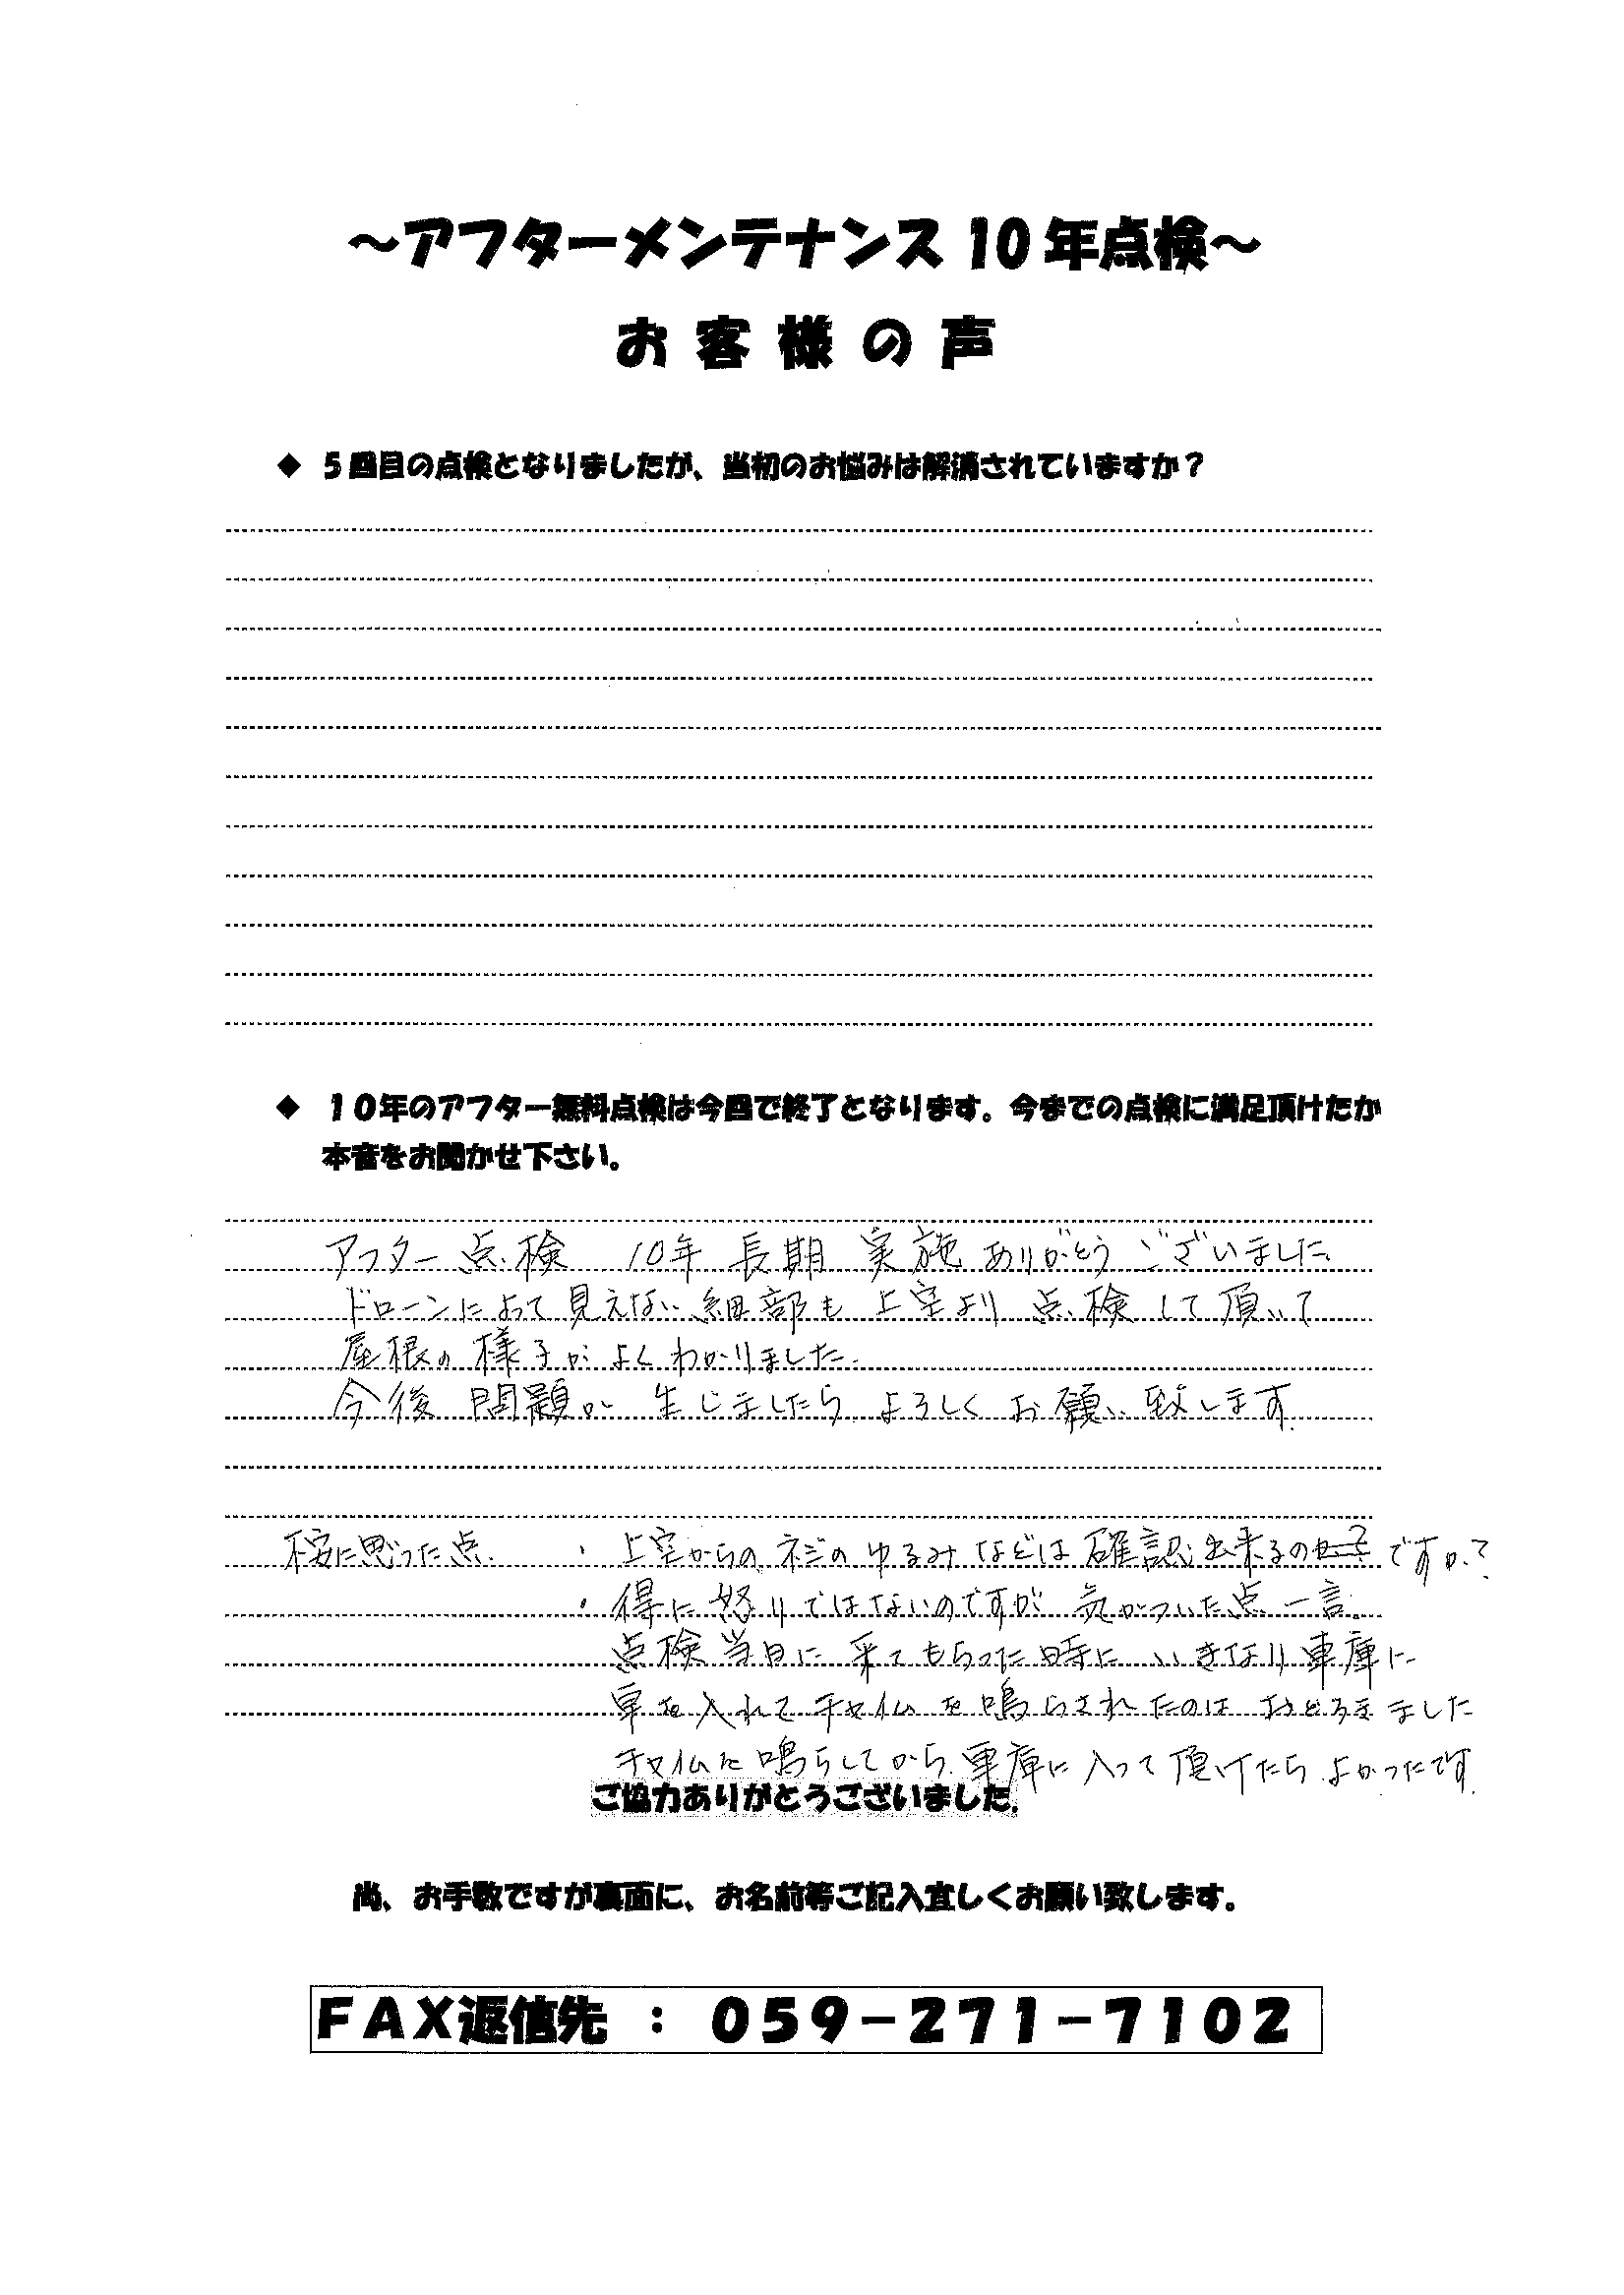 ～アフターメンテナンス 10 年点検～
お 客 様 の 声
◆ 5回目の点検となりましたが、当初のお悩みは解消されていますか？
◆ 10年のアフター無料点検は今回で終了となります。今までの点検に満足頂けたか
本音をお聞かせ下さい。
アフター点検 10年 長期 実施 ありがとう ございました
ドローンによって見えない細部も 上空より 点検 して 頂いて
屋根の 様子が よく わかりました.
今後 問題が 生じましたら よろしく お願い 致します.
に思った点. ・上空からの ネジの ゆるみ などは 確認 出来るの ですか？
・得に 怒りではないのですが 気がついた点 一言.
点検 当日に 来てもらった時に いきなり 車庫に
車を入れて チャイム を 鳴らされたのは おどろきました
チャイムを 鳴らしてから 車庫に 入って 頂けたら よかったです.
ご協力ありがとうございました。
尚、お手数ですが裏面に、お名前等ご記入宜しくお願い致します。
FAX返信先 ： 059－271－7102